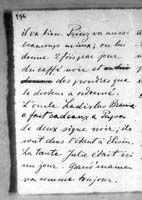 il va bien. Prinz va aussi
beaucoup mieux; on lui
donne 2 fois par jour
du caffé noir et
des poudres que
le docteur a ordonné.
L'oncle Ladislas
a fait cadeau à
de deux signe noir; ils
sont dans l'étant à
La tante Julia était ici
un jour. Grand'maman
va comme toujour.